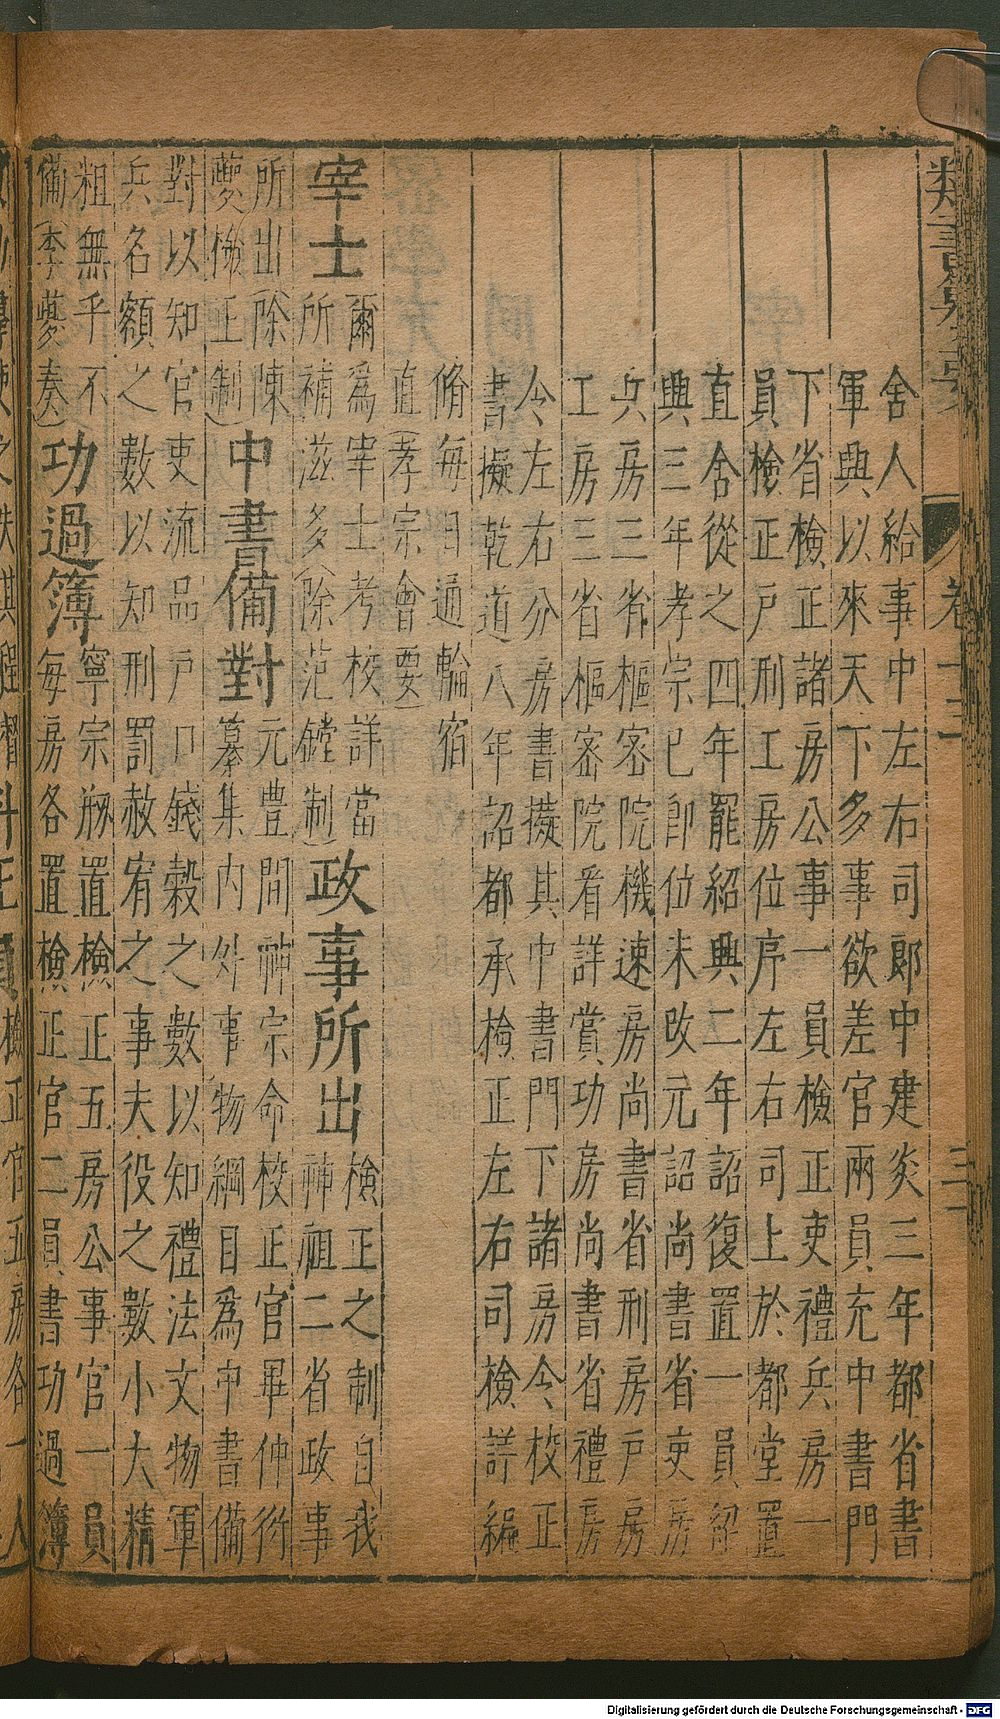 卷十二
三
舍人給事中左右司郎中建炎三年都省書
軍興以來天下多事欲差官兩員充中書門
下省檢正諸房公事一員檢正吏禮兵房一
員檢正戶刑工房位序左右司上於都堂置
直舍從之四年罷紹興二年詔復置一員紹
興三年孝宗已卽位未改元詔尚書省吏房
兵房三省樞密院機速房尚書省刑房戶房
工房三省樞密院看詳賞功房尚書省禮房
令左右分房書擬其中書門下諸房令校正
書擬乾道八年詔都承檢正左右司檢詳編
脩每日通輪宿
直(孝宗會要)
宰士爾爲宰士考校詳當
所補滋多(除范鏜制)政事所出檢正之制自我
神祖二省政事
所出(除陳
夔檢正制)中書備對元豊間神宗命校正官畢仲衍
纂集內外事物綱目爲中書備
對以知官吏流品戶口錢穀之數以知禮法文物軍
兵名額之數以知刑罰赦宥之事夫役之數小大精
粗無乎不
備(李夔奏)功過簿寧宗剏置檢正五房公事官一員
每房各置檢正官二員書功過簿